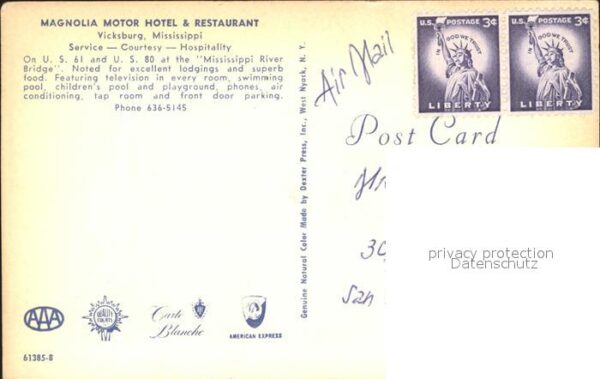 MAGNOLIA MOTOR HOTEL & RESTAURANT
Vicksburg, Mississippi
Service — Courtesy — Hospitality
On U. S. 61 and U. S. 80 at the "Mississippi River
Bridge". Noted for excellent lodgings and superb
food. Featuring television in every room, swimming
pool, children's pool and playground, phones, air
conditioning, tap room and front door parking.
Phone 636-5145
Genuine Natural Color Made by Dexter Press, Inc., West Nyack, N. Y.
Air Mail
U.S. POSTAGE 3¢
IN GOD WE TRUST
LIBERTY
U.S. POSTAGE 3¢
IN GOD WE TRUST
LIBERTY
Post Card
San
privacy protection
Datenschutz
AAA
QUALITY COURTS
Carte Blanche
AMERICAN EXPRESS
61385-B